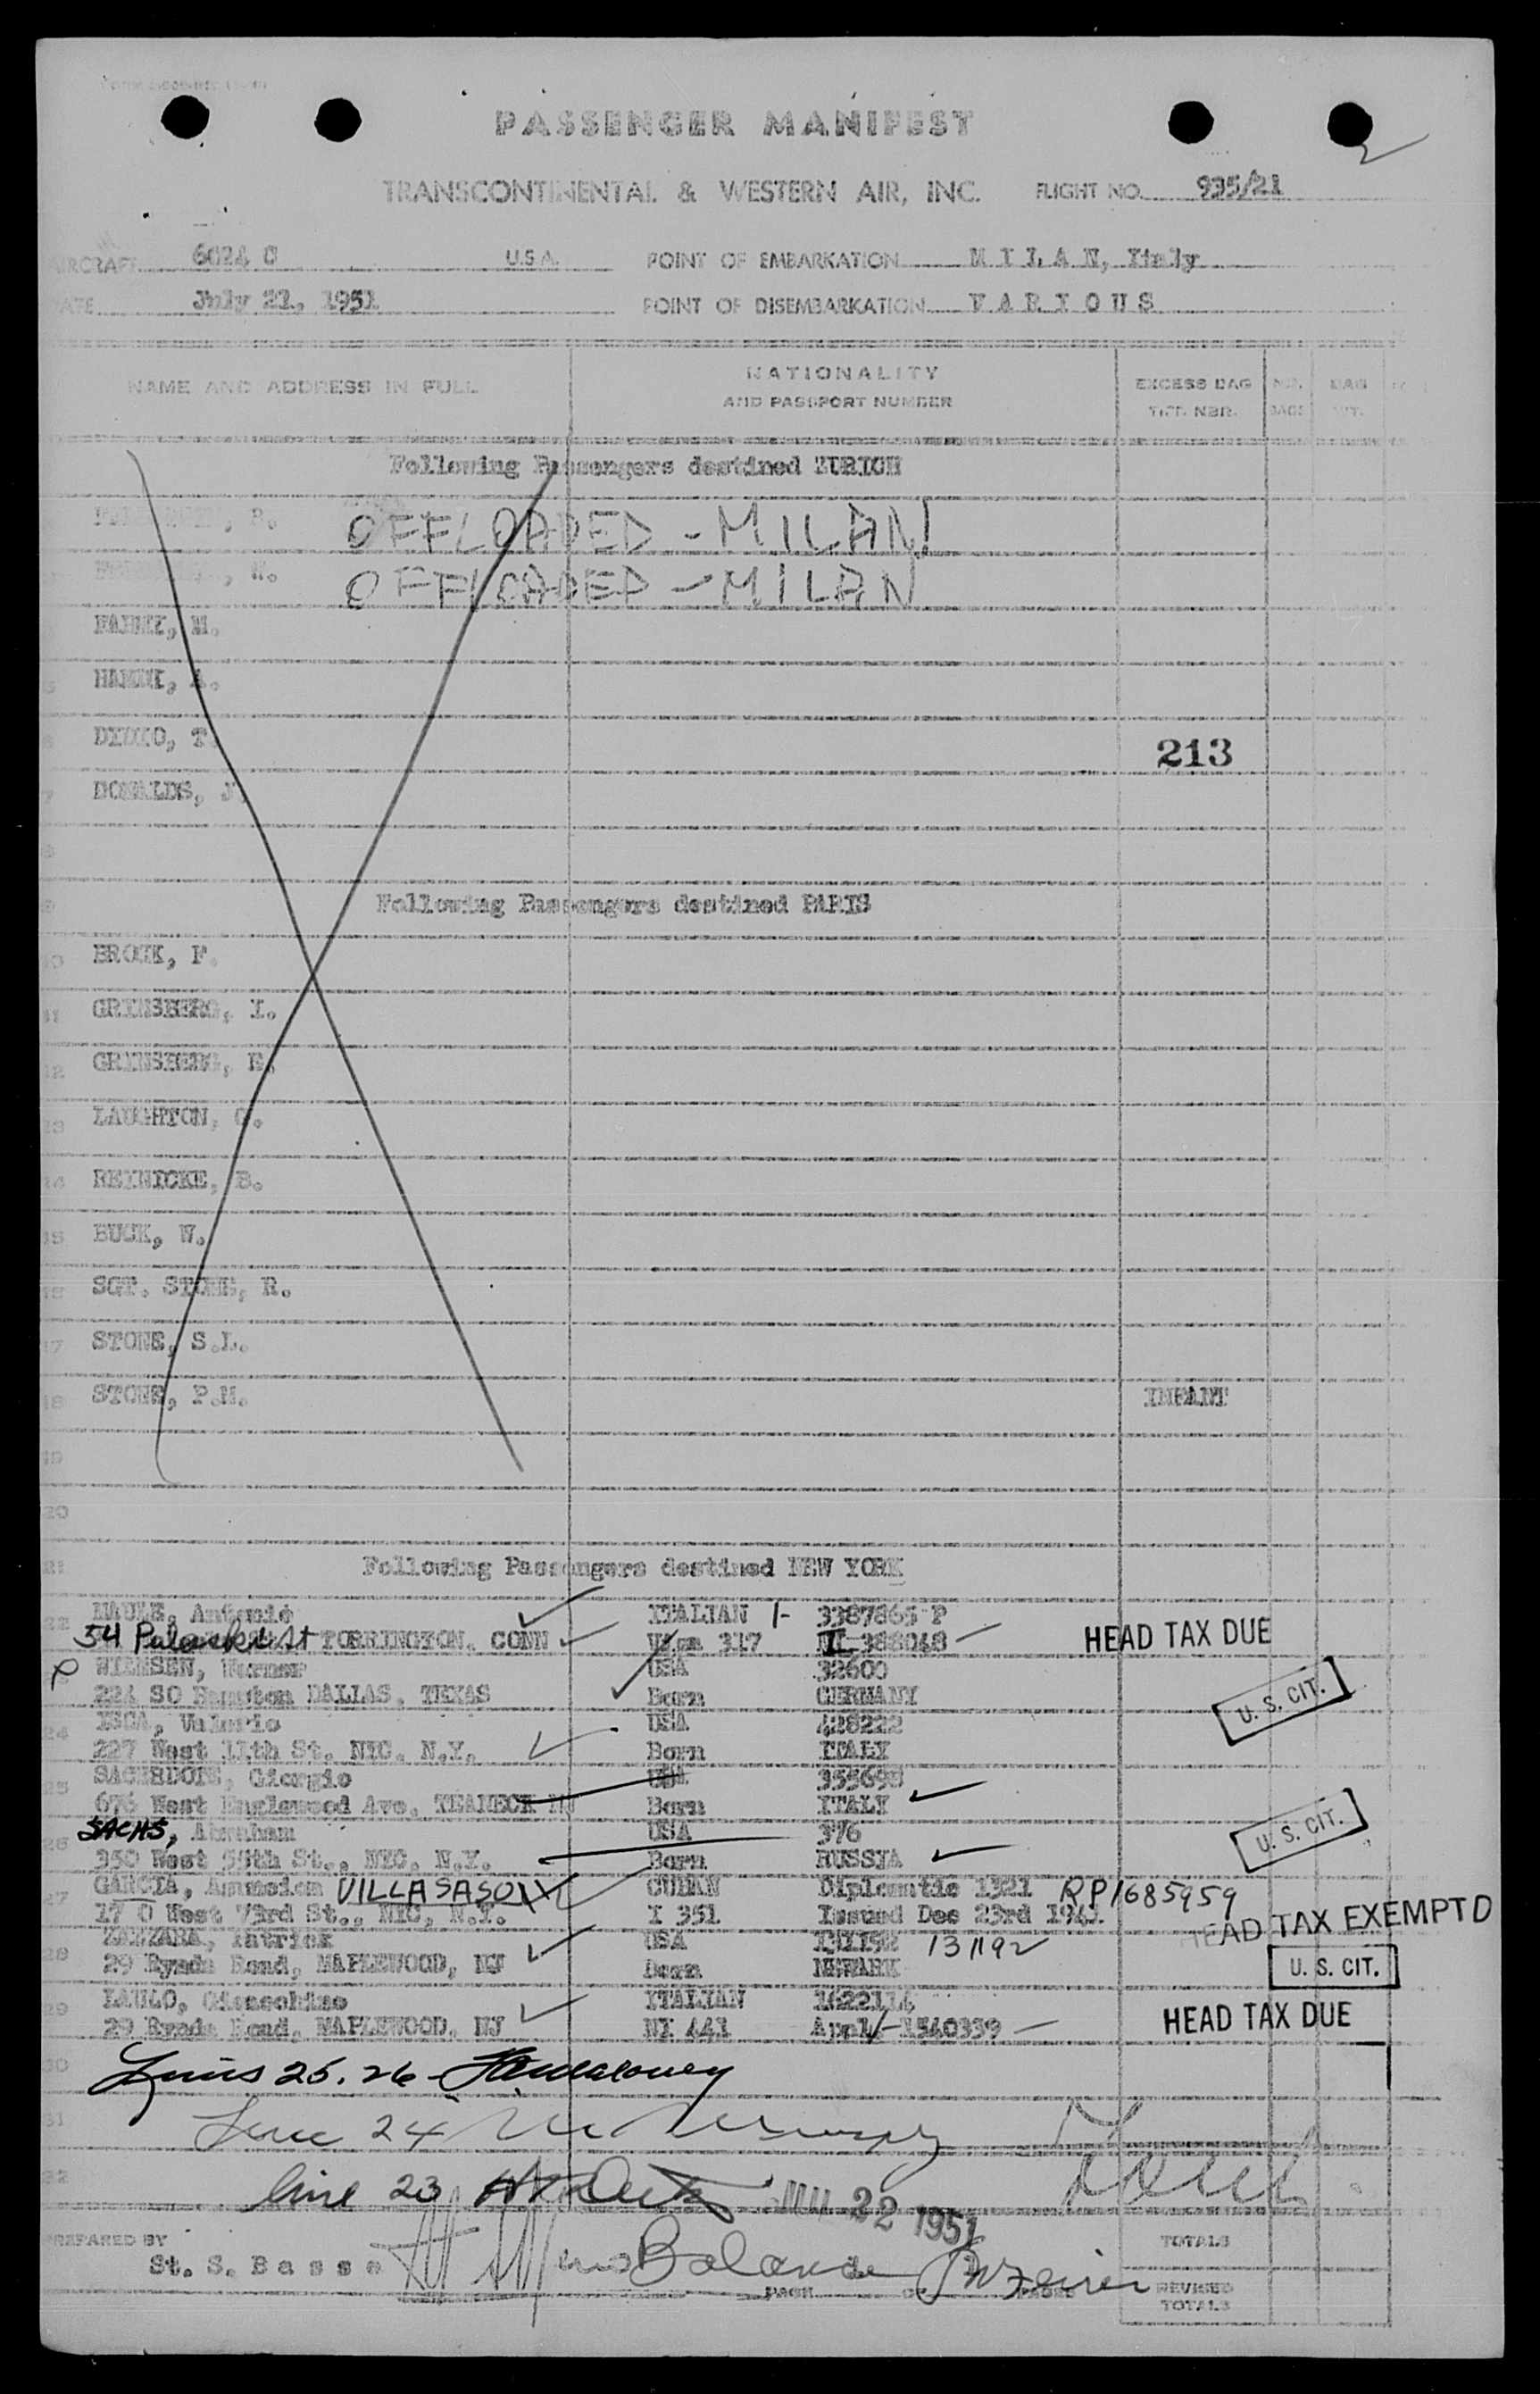 PASSENGER MANIFEST
TRANSCONTINENTAL & WESTERN AIR, INC. FLIGHT NO. 935/21
AIRCRAFT 6024 C U.S.A. POINT OF EMBARKATION M I L A N, Italy
DATE July 21, 1951 POINT OF DISEMBARKATION V A R I O U S
NAME AND ADDRESS IN FULL NATIONALITY AND PASSPORT NUMBER EXCESS BAG TKT. NBR. NO. BAGS BAG WT.
Following Passengers destined ZURICH
, P. OFFLOADED - MILAN
, W. OFFLOADED - MILAN
, M.
5 , A.
6 , T. 213
7 DONALDS, J.
8
9 Following Passengers destined PARIS
10 BROOK, F.
11 GRINSBERG, I.
12 GRINSBERG,
13 LAUGHTON, C.
14 REINICKE, B.
15 BUCK, W.
16 SGT. STONE, R.
17 STONE, S.L.
18 STONE, P.M. INFANT
19
20
21 Following Passengers destined NEW YORK
22 , Antonio ITALIAN 1- 3387865 P
54 Pulaski St TORRINGTON, CONN Visa 317 388048 HEAD TAX DUE
, Werner USA 32600
224 SO Hampton DALLAS, TEXAS Born GERMANY U. S. CIT.
24 ISCA, Valerio USA 428222
227 West 11th St. NYC. N.Y. Born ITALY
25 SACERDOTE, Giorgio USA
676 West Englewood Ave, TEANECK NJ Born ITALY
26 SACHS, Abraham USA 376 U. S. CIT.
350 West 55th St., NYC, N.Y. Born RUSSIA
27 GARCIA, Asuncion VILLASASO CUBAN Diplomatic 1321 RP1685959
17 0 West 73rd St., NYC, N.Y. I 351 Issued Dec 23rd HEAD TAX EXEMPT D
28 ZAZZARA, Patrick USA 131192 131192
29 Ryeda Road, MAPLEWOOD, NJ Born NEWARK U. S. CIT.
29 LAULO, ITALIAN
29 Ryeda Road, MAPLEWOOD, NJ NI 441 Appl 1540339 HEAD TAX DUE
30 Lines 25. 26
31 Line 24
32 line 23 JUL 22 1951
PREPARED BY TOTALS
St. S. Basso Balance
PAGE OF PAGES REVISED TOTALS